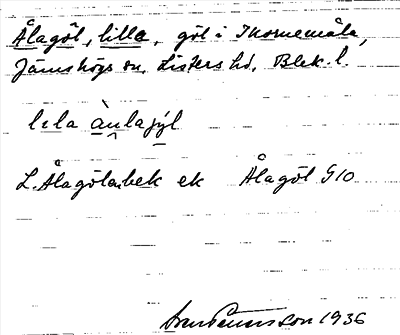 Ålagöl, lilla, göl i Thornemåla,
Jämshögs sn. Listers hd. Blek. l.
lıla ànlajyl
L. Ålagöl enl. ek Ålagöl G10
1936